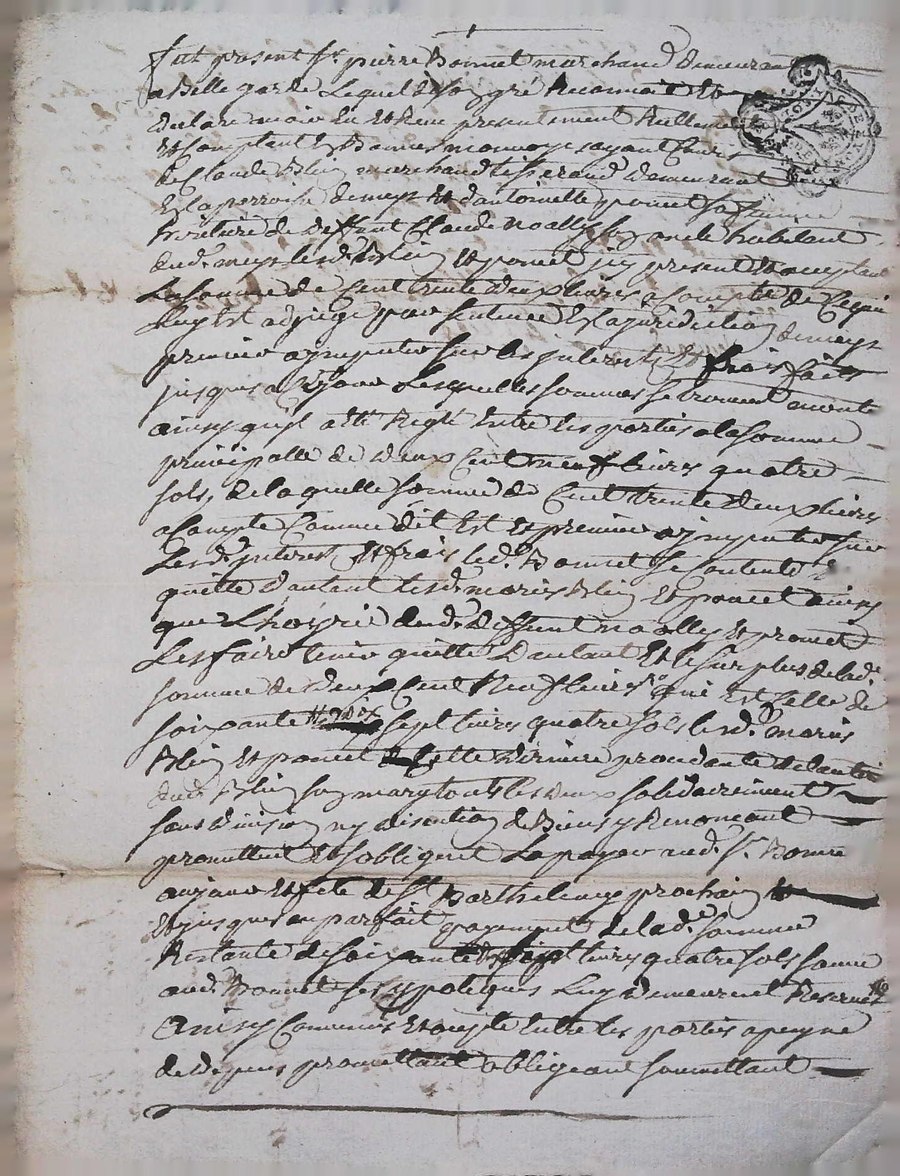 fut present sr pierre Bonnet marchand demeurant
a Bellegarde Lequel de son gré Reconnoit et
declare avoir eu et Receu presentement Reellement
et Comptant en Bonnes monnoye ayant Cours
de Claude Blein marchand tisserand demeurant
en la parroisse de meys et d'antoinette poncet sa femme
heritiere de deffunt Claude noally son oncle habitant
aud. meys lesd. Blein et poncet icy present et acceptant
La somme de Cent trente deux livres a Compte de Ce qui
Luy est adjugé par sentence en la juridiction de meys
premier a imputer sur les interets et frais faits
jusques a ce jour Lesquelles sommes se trouvent monter
ainsy qu'il a été Reglé entre les parties a la somme
principalle de deux Cent neuf livres quatre
sols, de laquelle somme de Cent trente deux livres
a Compte Comme dit est et premier a imputer sur
Les d. interest et frais led. Bonnet se contente et
quitte d'autant lesd. mariés Blein et poncet ainsy
que L'hoyrie dud. deffunt noally et promet
Les faire tenir quitte d'autant et le surplus de lad.
somme de deux Cent neuf livres qui est Celle de
soixante dix sept livres quatre sols lesd. mariés
Blein et poncet Cette derniere procedante de l'autorité
dud. Blein son mary tous les deux solidairement
sans division ny discution de Biens y Renonceant
promettent et s'obligent La payer aud. sr Bonnet
au jour et fete de st Barthelemy prochain
et jusques au parfait payement de lad. somme
Restante de soixante dix sept livres quatre sols
aud. Bonnet ses ypoteques Luy demeurent Reservés
Ainsy Convenu et accepté entre les parties a peyne
de depens promettant obligeant soumettant